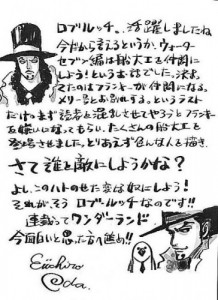 ロブルッチ、活躍しましたね
今だから言えるというか、ウォーター
セブン編は船大工を仲間に
しよう!という話でした。決め
てたのはフランキーが仲間になる。
メリー号とお別れする。というラスト
だけ。まず読者を混乱させてやろうとフランキー
を嫌いになってもらい、たくさんの船大工を
登場させました。とりあえず色んな人を描き、
さて誰を敵にしようかな?
よし、このハトのせた変な奴にしよう!
それが、そうロブ・ルッチなのです!!
連載ってワンダーランド
今面白いと思った方へ進め!!
Eiichiro
Oda.